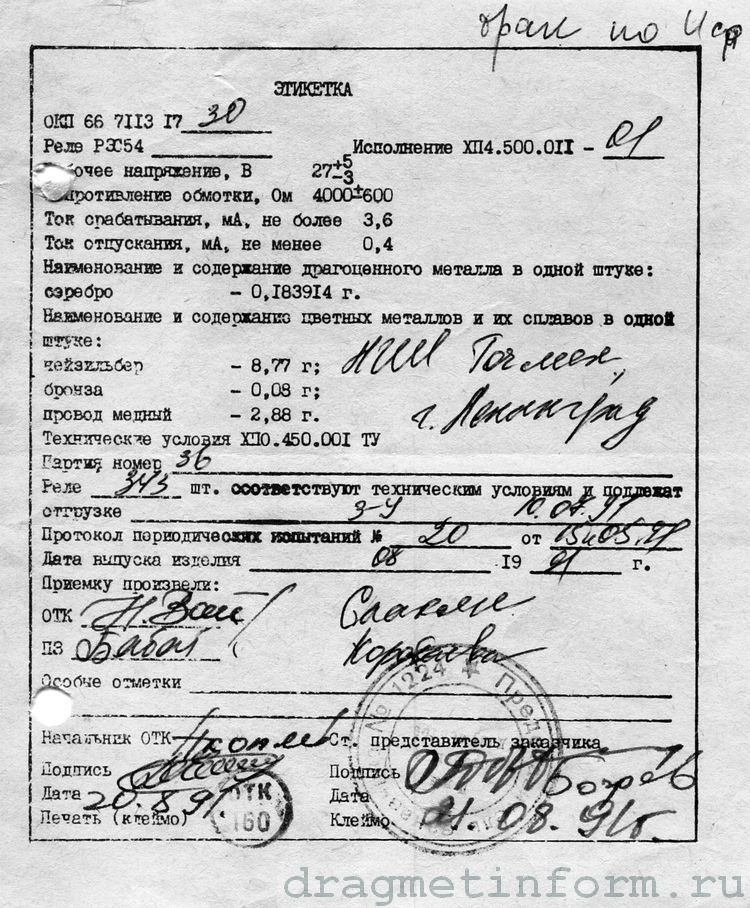 брак по Исф
ЭТИКЕТКА
ОКП 66 7113 17 30
Реле РЭС54 Исполнение ХП4.500.011 - 01
бочее напряжение, В 27+5-3
противление обмотки, Ом 4000±600
Ток срабатывания, мА, не более 3,6
Ток отпускания, мА, не менее 0,4
Наименование и содержание драгоценного металла в одной штуке:
сэребро - 0,183914 г.
Наименование и содержание цветных металлов и их сплавов в одной
штуке:
нейзильбер - 8,77 г; НИИ Точмех,
бронза - 0,08 г;
провод медный - 2,88 г. г. Ленинград
Технические условия ХП0.450.001 ТУ
Партия номер 36
Реле 343 шт. соответствуют техническим условиям и подлежат
отгрузке 3-У 10.07.91
Протокол периодических испытаний № 20 от 15.05.91
Дата выпуска изделия 08 19 91 г.
Приемку произвели:
ОТК
ПЗ Бабат
Особые отметки
Начальник ОТК Ст. представитель заказчика
Подпись Подпись
Дата 20.8.91 Дата
Печать (клеймо) Клеймо 21.08.91г.
ОТК
160
№ 1224 ★ Пред
dragmetinform.ru